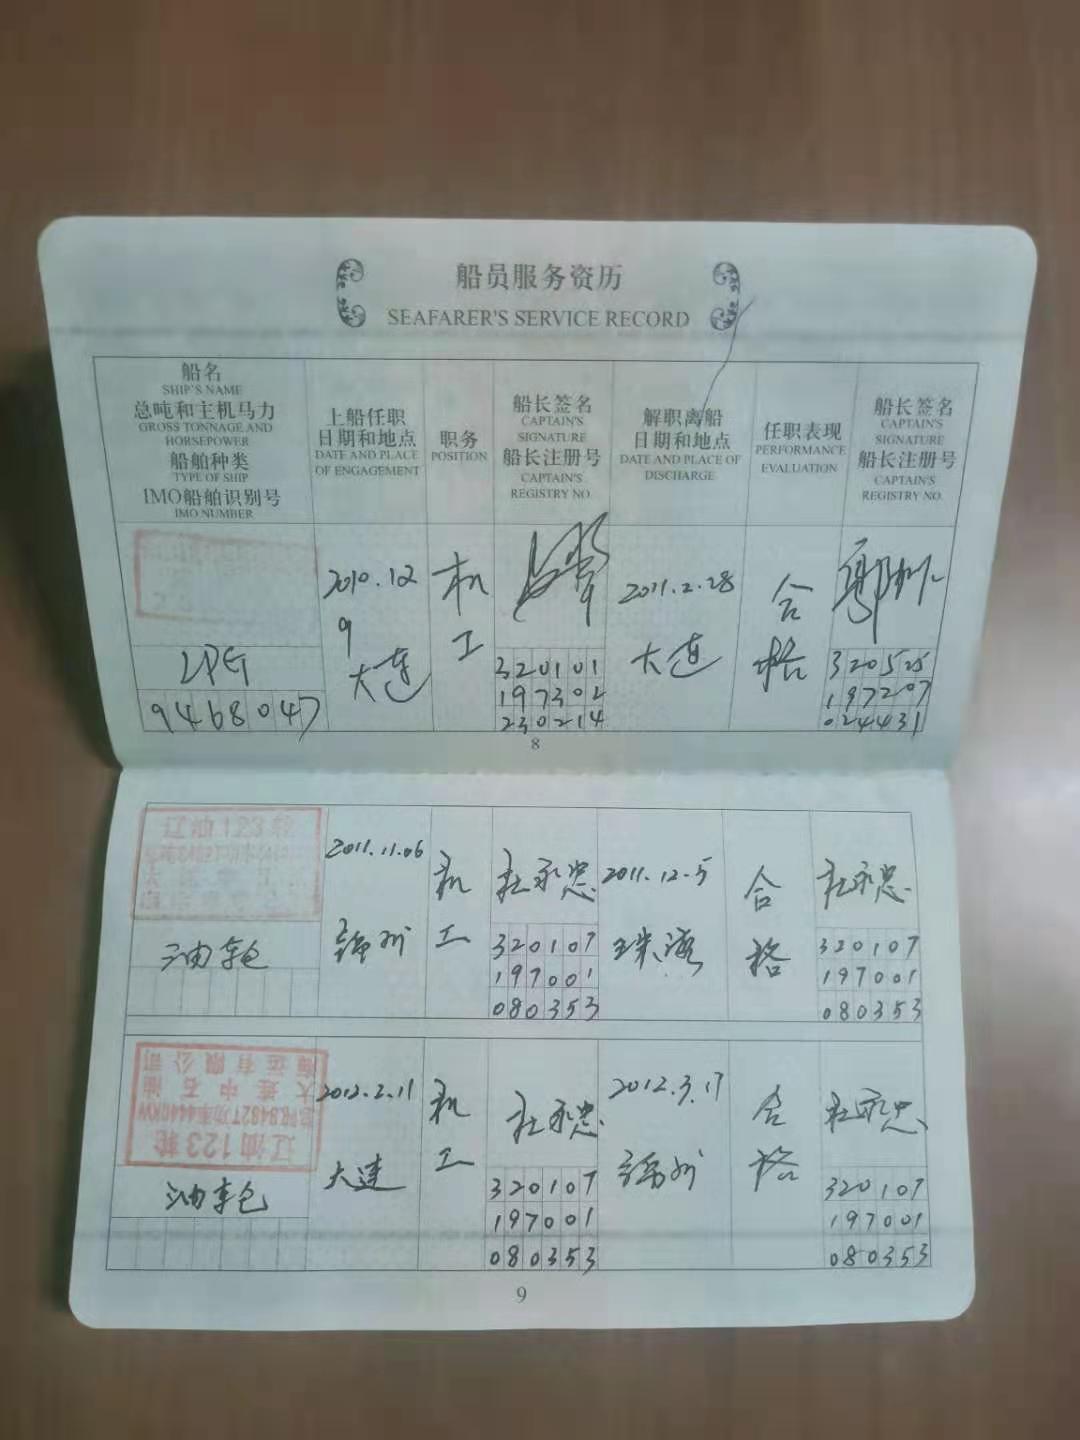 船员服务资历
SEAFARER'S SERVICE RECORD
船名
SHIP'S NAME
总吨和主机马力
GROSS TONNAGE AND
HORSEPOWER
船舶种类
TYPE OF SHIP
IMO船舶识别号
IMO NUMBER
上船任职
日期和地点
DATE AND PLACE
OF ENGAGEMENT
职务
POSITION
船长签名
CAPTAIN'S
SIGNATURE
船长注册号
CAPTAIN'S
REGISTRY NO.
解职离船
日期和地点
DATE AND PLACE OF
DISCHARGE
任职表现
PERFORMANCE
EVALUATION
船长签名
CAPTAIN'S
SIGNATURE
船长注册号
CAPTAIN'S
REGISTRY NO.
LPG
9468047
2010.12
9
大连
机
工
320101
197302
230214
2011.2.28
大连
合
格
320525
197207
024431
8
辽油123轮
油轮
2011.11.06
锦州
机
工
杜永忠
320107
197001
080353
2011.12.5
珠海
合
格
杜永忠
320107
197001
080353
辽油123轮
总吨8482T功率4440KW
大连中石油
海运有限公司
油轮
2012.2.11
大连
机
工
杜永忠
320107
197001
080353
2012.3.17
锦州
合
格
杜永忠
320107
197001
080353
9